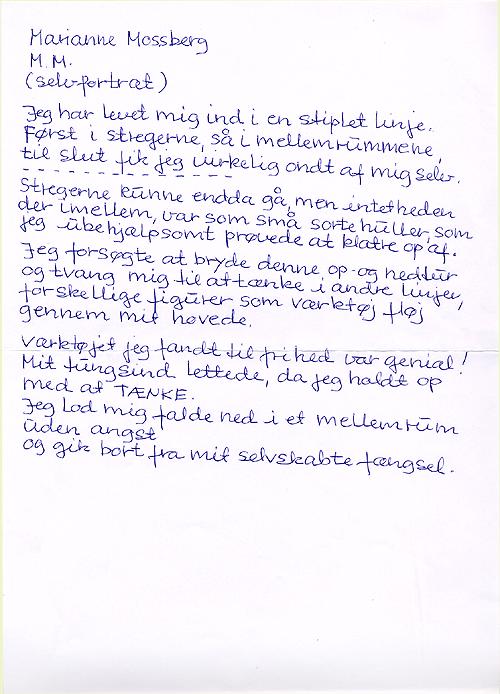 Marianne Mossberg
M.M.
(selvportræt)
Jeg har levet mig ind i en stiplet linje.
Først i stregerne, så i mellemrummene,
til slut fik jeg virkelig ondt af mig selv.
- - - - - - - - - - - - - -
Stregerne kunne endda gå, men intetheden
der imellem, var som små sorte huller, som
jeg ubehjælpsomt prøvede at klatre op af.
Jeg forsøgte at bryde denne op-og nedtur
og tvang mig til at tænke i andre linjer,
forskellige figurer som værktøj fløj
gennem mit hovede.
Værktøjet jeg fandt til frihed var genial!
Mit tungsind lettede, da jeg holdt op
med at TÆNKE.
Jeg lod mig falde ned i et mellemrum
uden angst
og gik bort fra mit selvskabte fængsel.